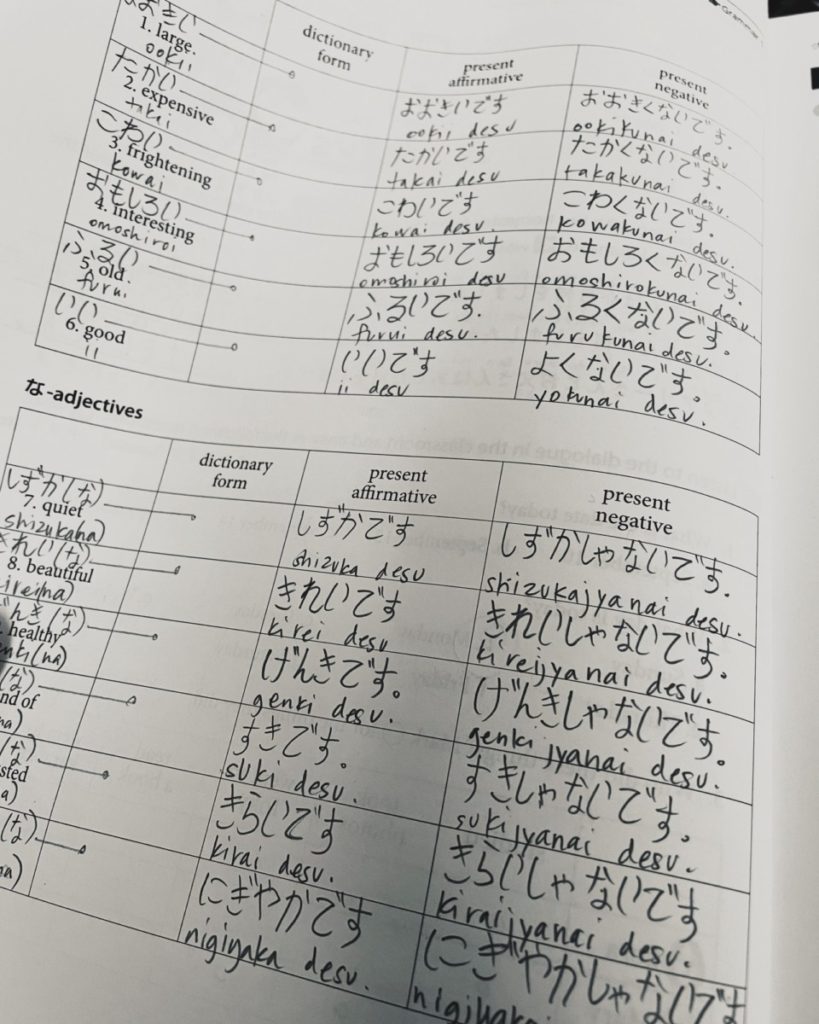 Grammar
おおきい
1. large
ookii
dictionary form
present affirmative
present negative
たかい
2. expensive
takai
おおきいです
ookii desu
おおきくないです。
ookikunai desu
こわい
3. frightening
kowai
たかいです
takai desu
たかくないです。
takakunai desu.
おもしろい
4. interesting
omoshiroi
こわいです
kowai desu.
こわくないです。
kowakunai desu.
ふるい
5. old
furui
おもしろいです
omoshiroi desu
おもしろくないです。
omoshirokunai desu.
いい
6. good
ii
ふるいです.
furui desu.
ふるくないです。
furukunai desu.
いいです
ii desu
よくないです。
yokunai desu.
な-adjectives
dictionary form
present affirmative
present negative
しずか(な)
7. quiet
shizuka(na)
しずかです
shizuka desu
しずかしゃないです.
shizukajyanai desu.
きれい(な)
8. beautiful
irei(na)
きれいです
kirei desu
きれいしゃないです.
kireijyanai desu.
んき(な)
healthy
enki(na)
げんきです。
genki desu.
げんきしゃないです。
genki jyanai desu.
(な)
nd of
na)
すきです。
suki desu.
すきしゃないです。
sukijyanai desu.
(な)
sted
a)
きらいです
kirai desu.
きらいしゃないです
kiraijyanai desu.
(な)
na)
にぎやかです
nigiyaka desu.
にぎやかしゃないです
nigiyaka